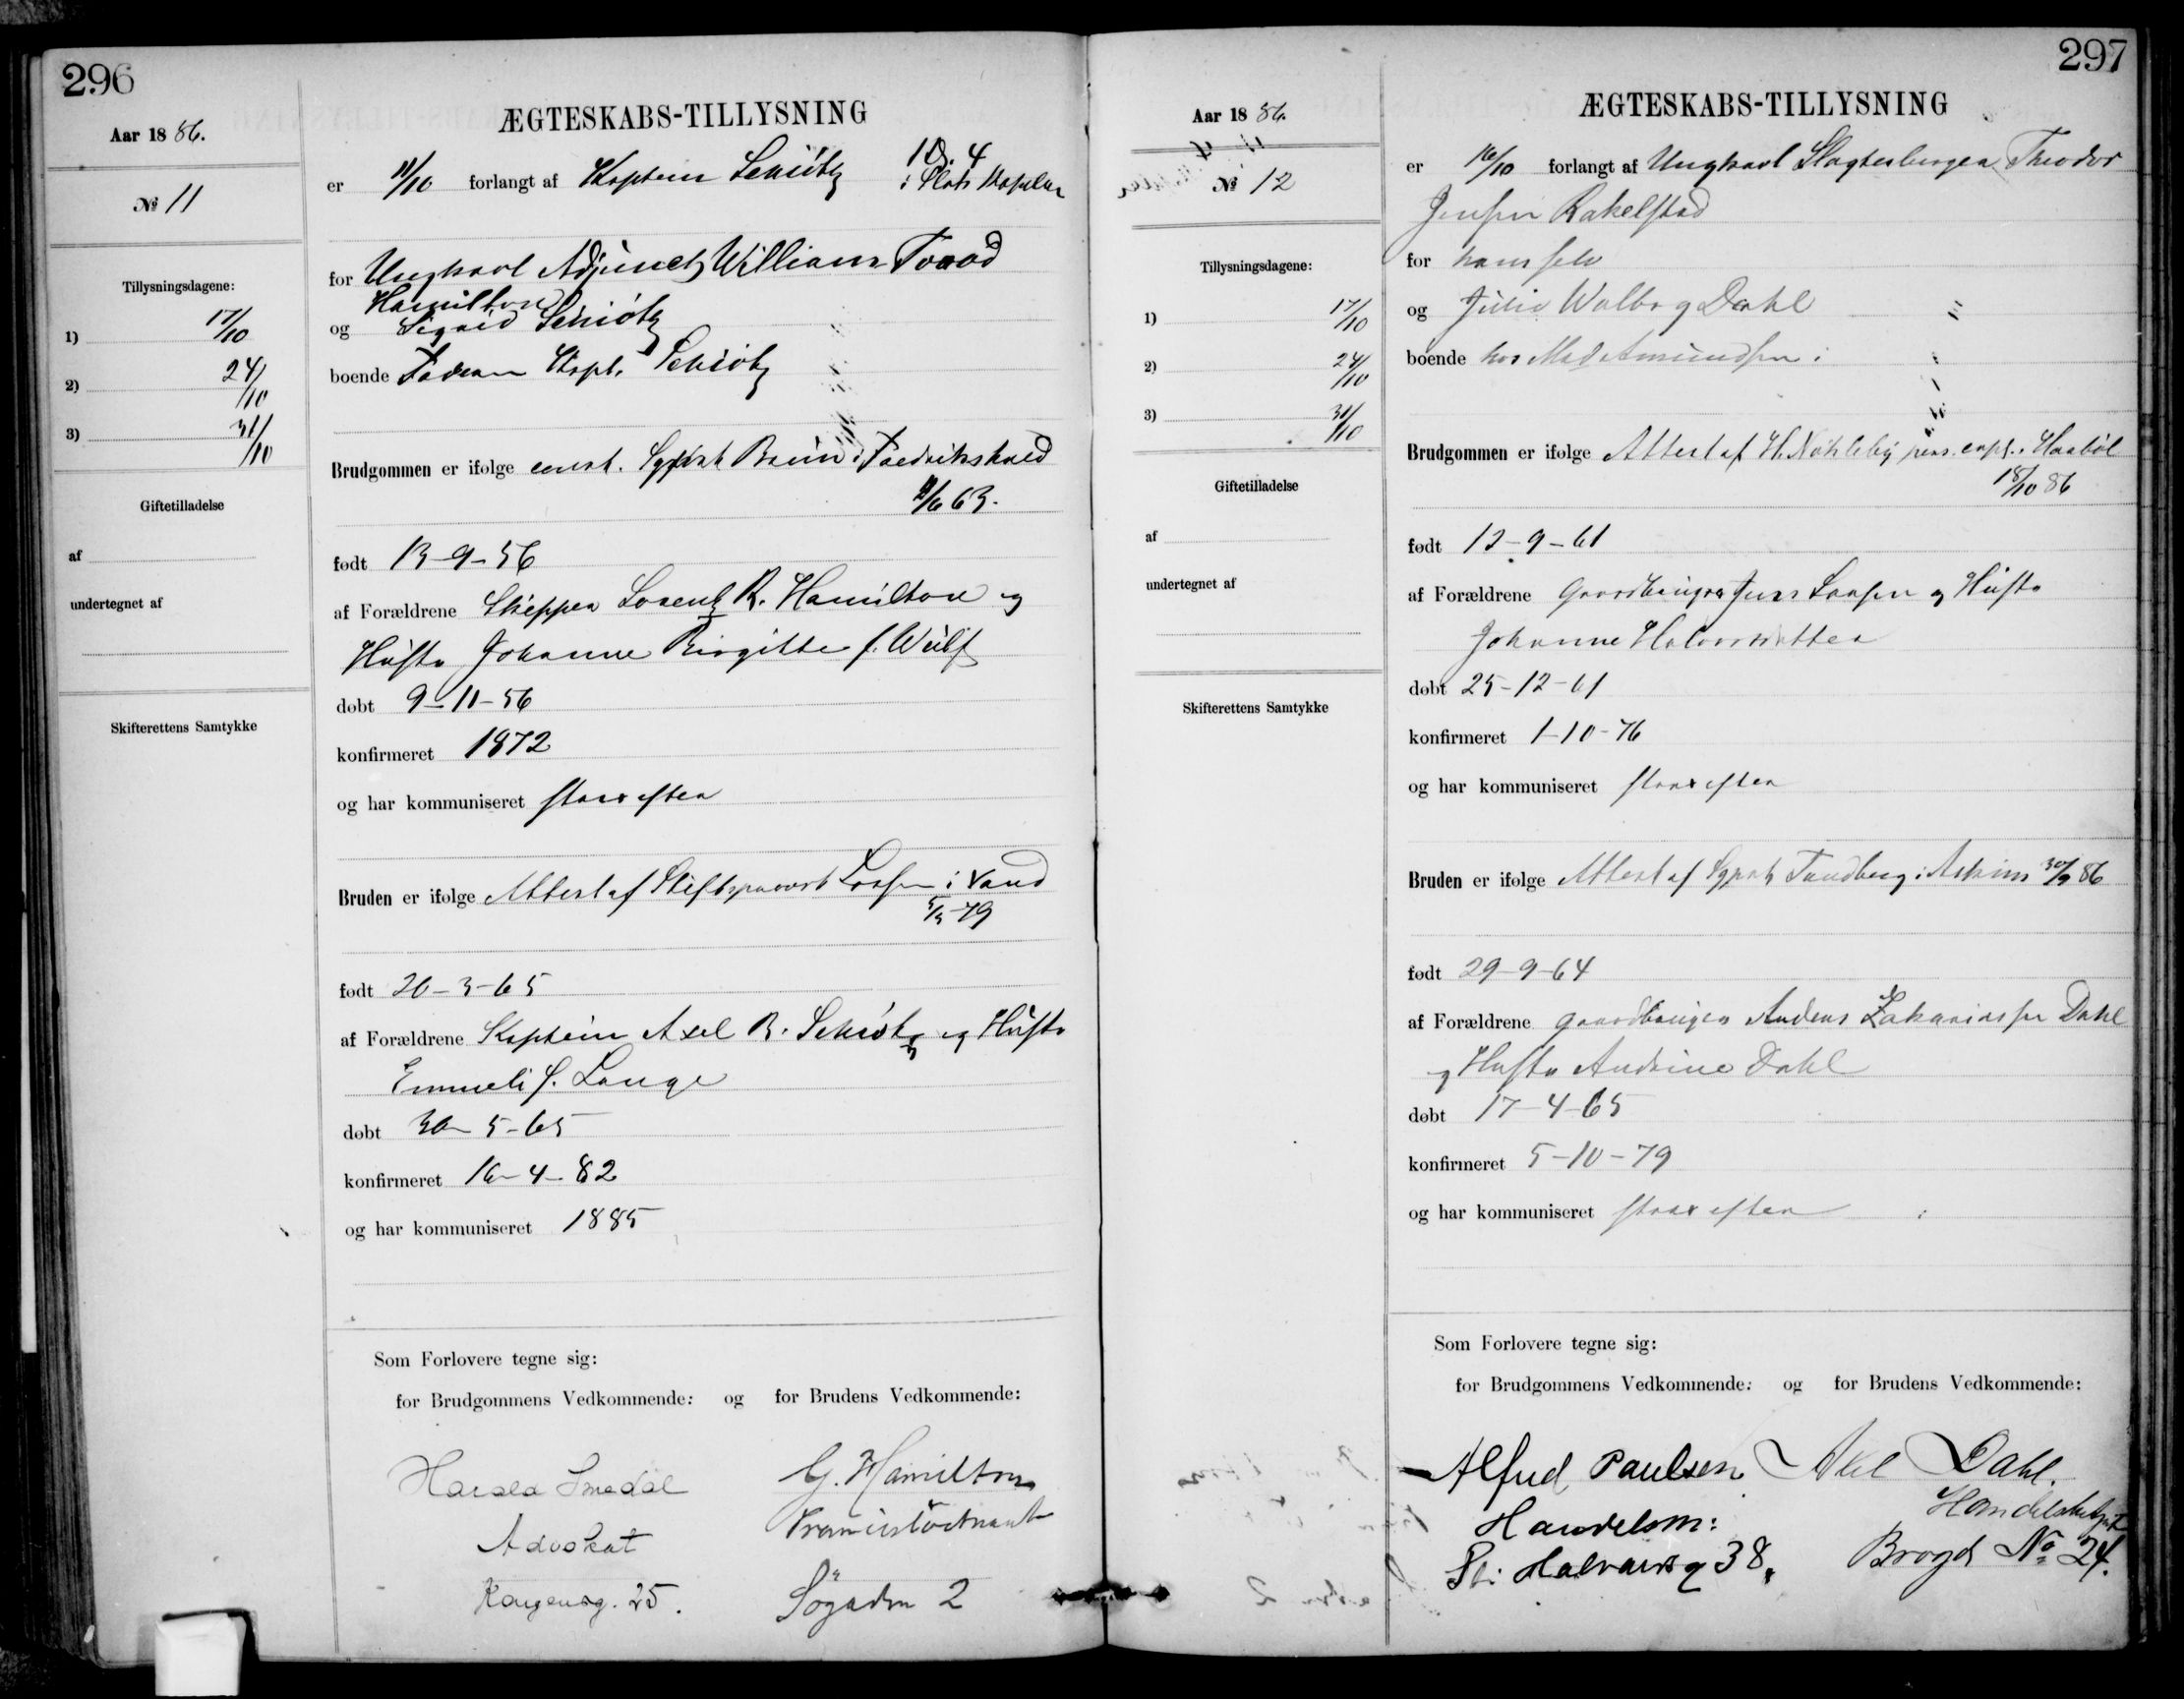 296
ÆGTESKABS-TILLYSNING
Aar 1886.
№ 11
er 11/10 forlangt af Kaptein Schiötz
10. 4
i Slots Kapelen
Tillysningsdagene:
1) 17/10
2) 24/10
3) 31/10
for Ungkarl Adjunct William
Hamilton
og Sigrid Schiötz
boende Faderen Kapt. Schiötz
Brudgommen er ifølge const. Sgprst Bruun i Fredrikshald
63.
Giftetilladelse
af
undertegnet af
Skifterettens Samtykke
født 13-9-56
af Forældrene Skipper Lorentz R. Hamilton og
Hustr Johanne Birgitte f. Wulf
døbt 9-11-56
konfirmeret 1872
og har kommuniseret strax efter
Bruden er ifølge Attest af Stiftsprovst i
79
født 20-3-65
af Forældrene Kaptein Axel B. Schiötz og Hustr
Emmeli f. Lange
døbt 30-5-65
konfirmeret 16-4-82
og har kommuniseret 1885
Som Forlovere tegne sig:
for Brudgommens Vedkommende: og for Brudens Vedkommende:
Harald Smedal
Advokat
Kongensg. 25.
G. Hamilton
Premierløitnant
Søgaden 2
297
ÆGTESKABS-TILLYSNING
Aar 1886.
№ 12
er 16/10 forlangt af Ungkarl Slagtersvend Theodor
Jensen Rakelstad
Tillysningsdagene:
1) 17/10
2) 24/10
3) 31/10
for ham selv
og Julie Walborg Dahl
boende hos Mad Amundsen i
Brudgommen er ifølge Attest af H. Nökleby pers. capl. i Haabøl
18/10 86
Giftetilladelse
af
undertegnet af
Skifterettens Samtykke
født 12-9-61
af Forældrene Gaardbruger Jens Larsen og Hustr
Johanne Halvorsdatter
døbt 25-12-61
konfirmeret 1-10-76
og har kommuniseret strax efter
Bruden er ifølge Attest af Sgprst Tandberg i Askim 30/9 86
født 29-9-64
af Forældrene gaardbruger Anders Zakariassen Dahl
og Hustr Andrine Dahl
døbt 17-4-65
konfirmeret 5-10-79
og har kommuniseret strax efter
Som Forlovere tegne sig:
for Brudgommens Vedkommende: og for Brudens Vedkommende:
Alfred Paulsen
Handelsm:
St: Halvards g 38.
Axel Dahl.
Handelsbetjent
Brogd No 24.